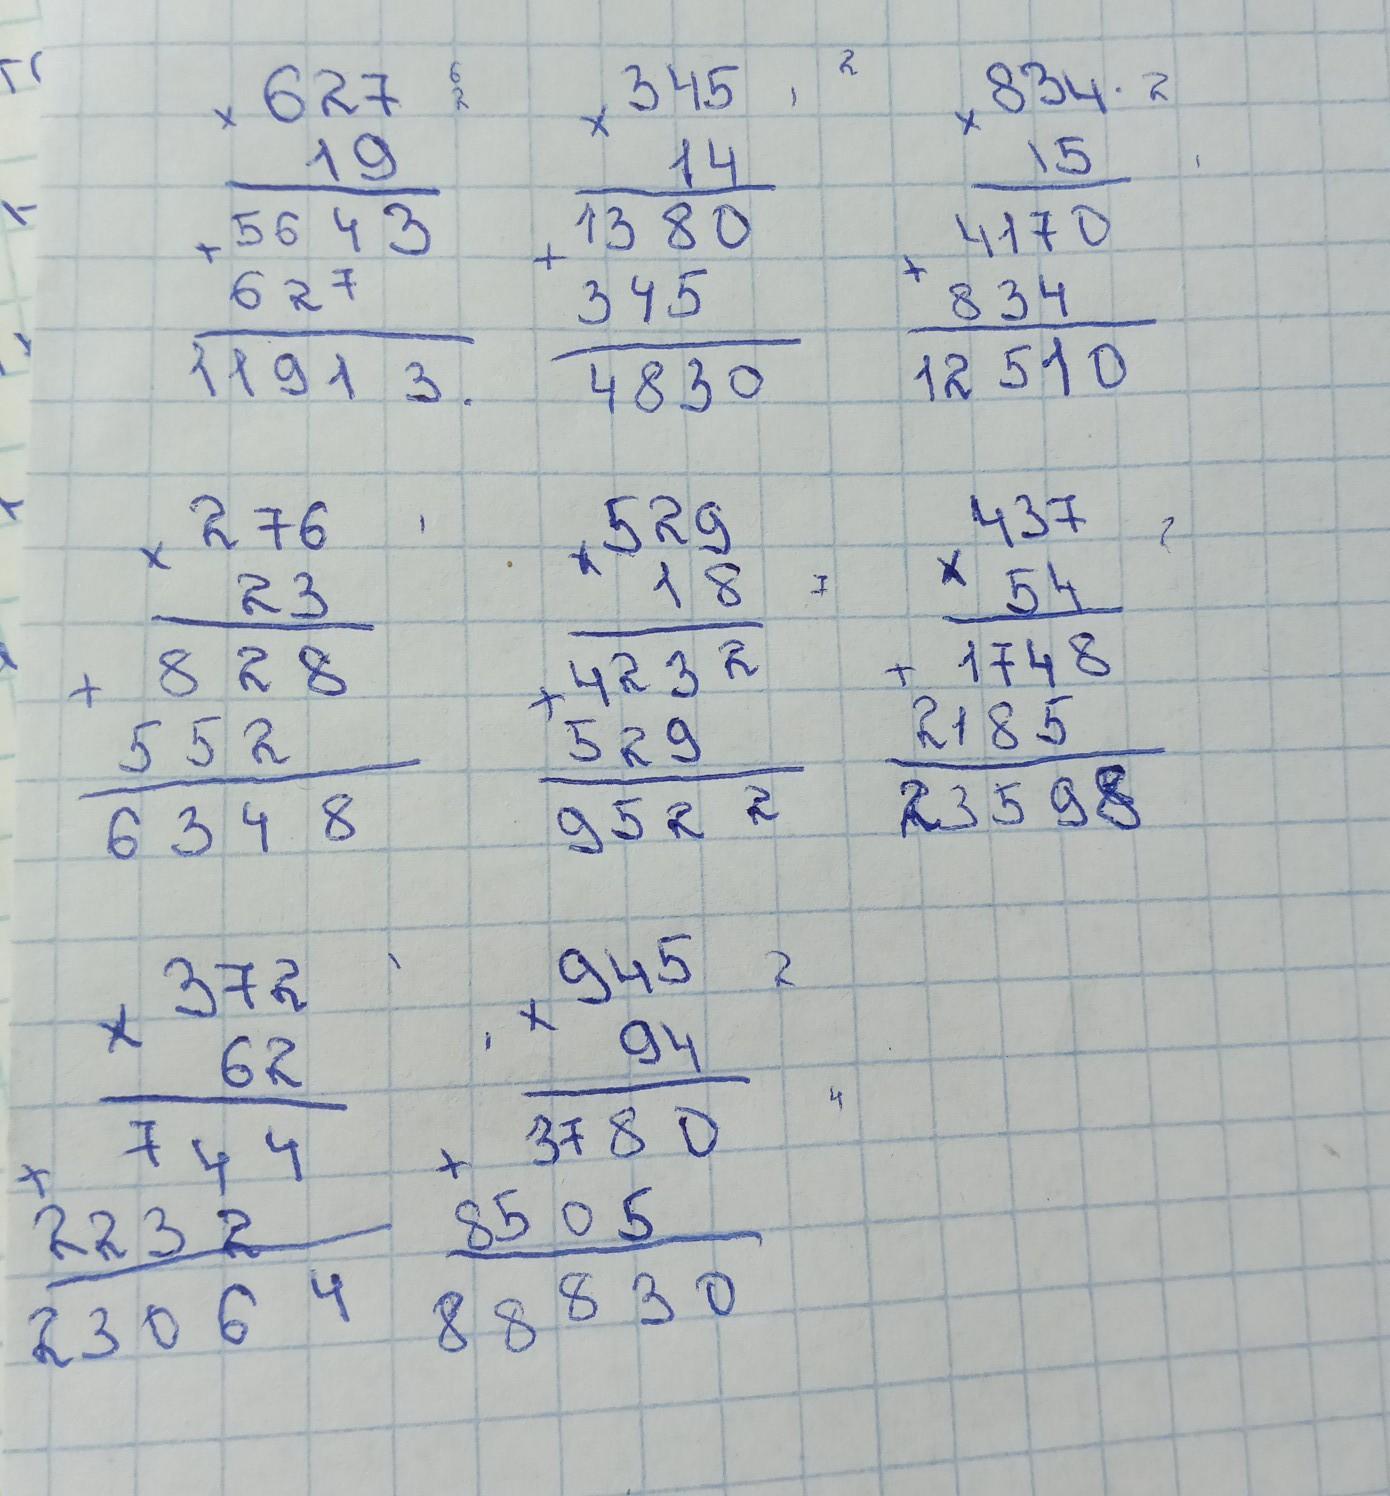 × 627 6 2 × 345 , 2 × 834 · 2
19 14 15
+ 5643 + 1380 + 4170
627 345 834
11913. 4830 12510
× 276 ' × 529 × 437 2
23 18 7 54
+ 828 + 4232 + 1748
552 529 2185
6348 9522 23598
× 372 ' × 945 2
62 94
+ 744 + 3780 4
2232 8505
23064 88830